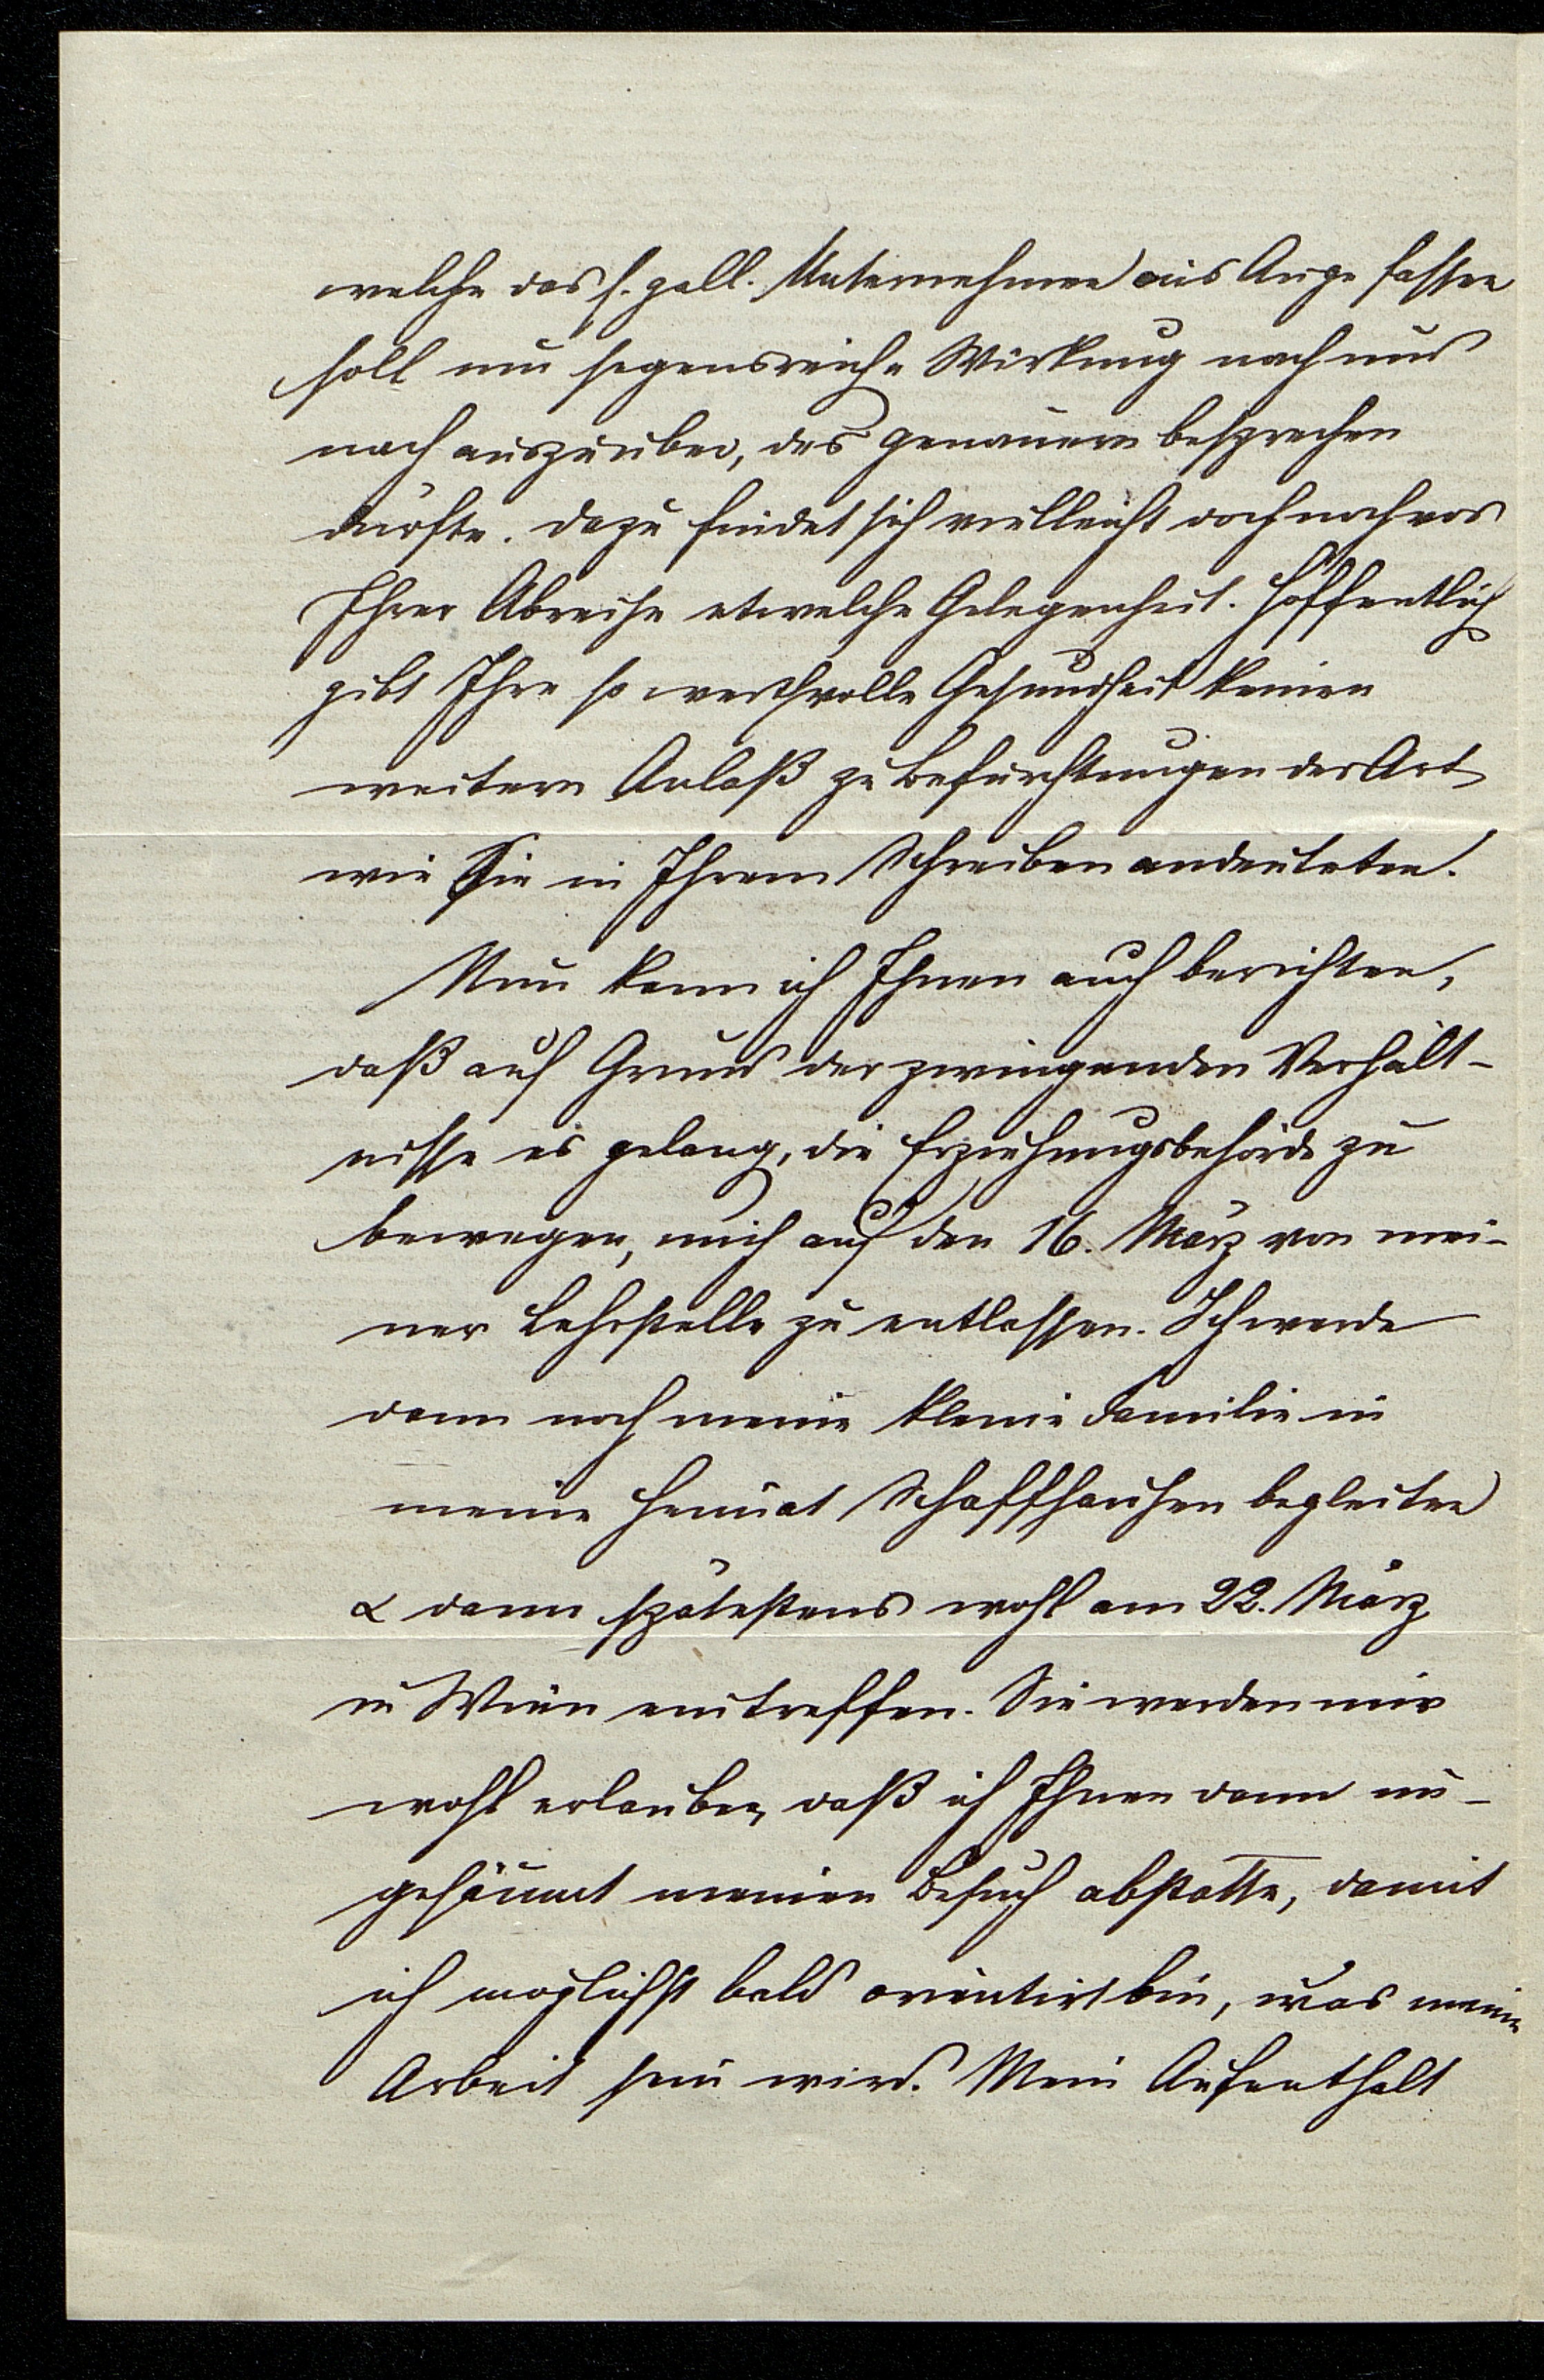 welche das s. gall. Unternehmen ins Auge fassen
soll um segensreiche Wirkung nach und
nach auszuüben, des genauern besprechen
dürfte. Dazu findet sich vielleicht doch noch vor
Ihrer Abreise etwelche Gelegenheit. Hoffentlich
gibt Ihre so werthvolle Gesundheit keinen
weitern Anlaß zu Befürchtungen der Art
wie Sie in Ihrem Schreiben andeuteten.
Nun kann ich Ihnen auch berichten,
daß auf Grund der zwingenden Verhält-
nisse es gelang, die Erziehungsbehörde zu
bewegen, mich auf den 16. März von mei-
ner Lehrstelle zu entlassen. Ich werde
dann noch meine kleine Familie in
meine Heimat Schaffhausen begleiten
& dann spätestens wohl am 22. März
in Wien eintreffen. Sie werden mir
wohl erlauben, daß ich Ihnen dann un-
gesäumt meinen Besuch abstatte, damit
ich möglichst bald orientirt bin, was meine
Arbeit sein wird. Mein Aufenthalt